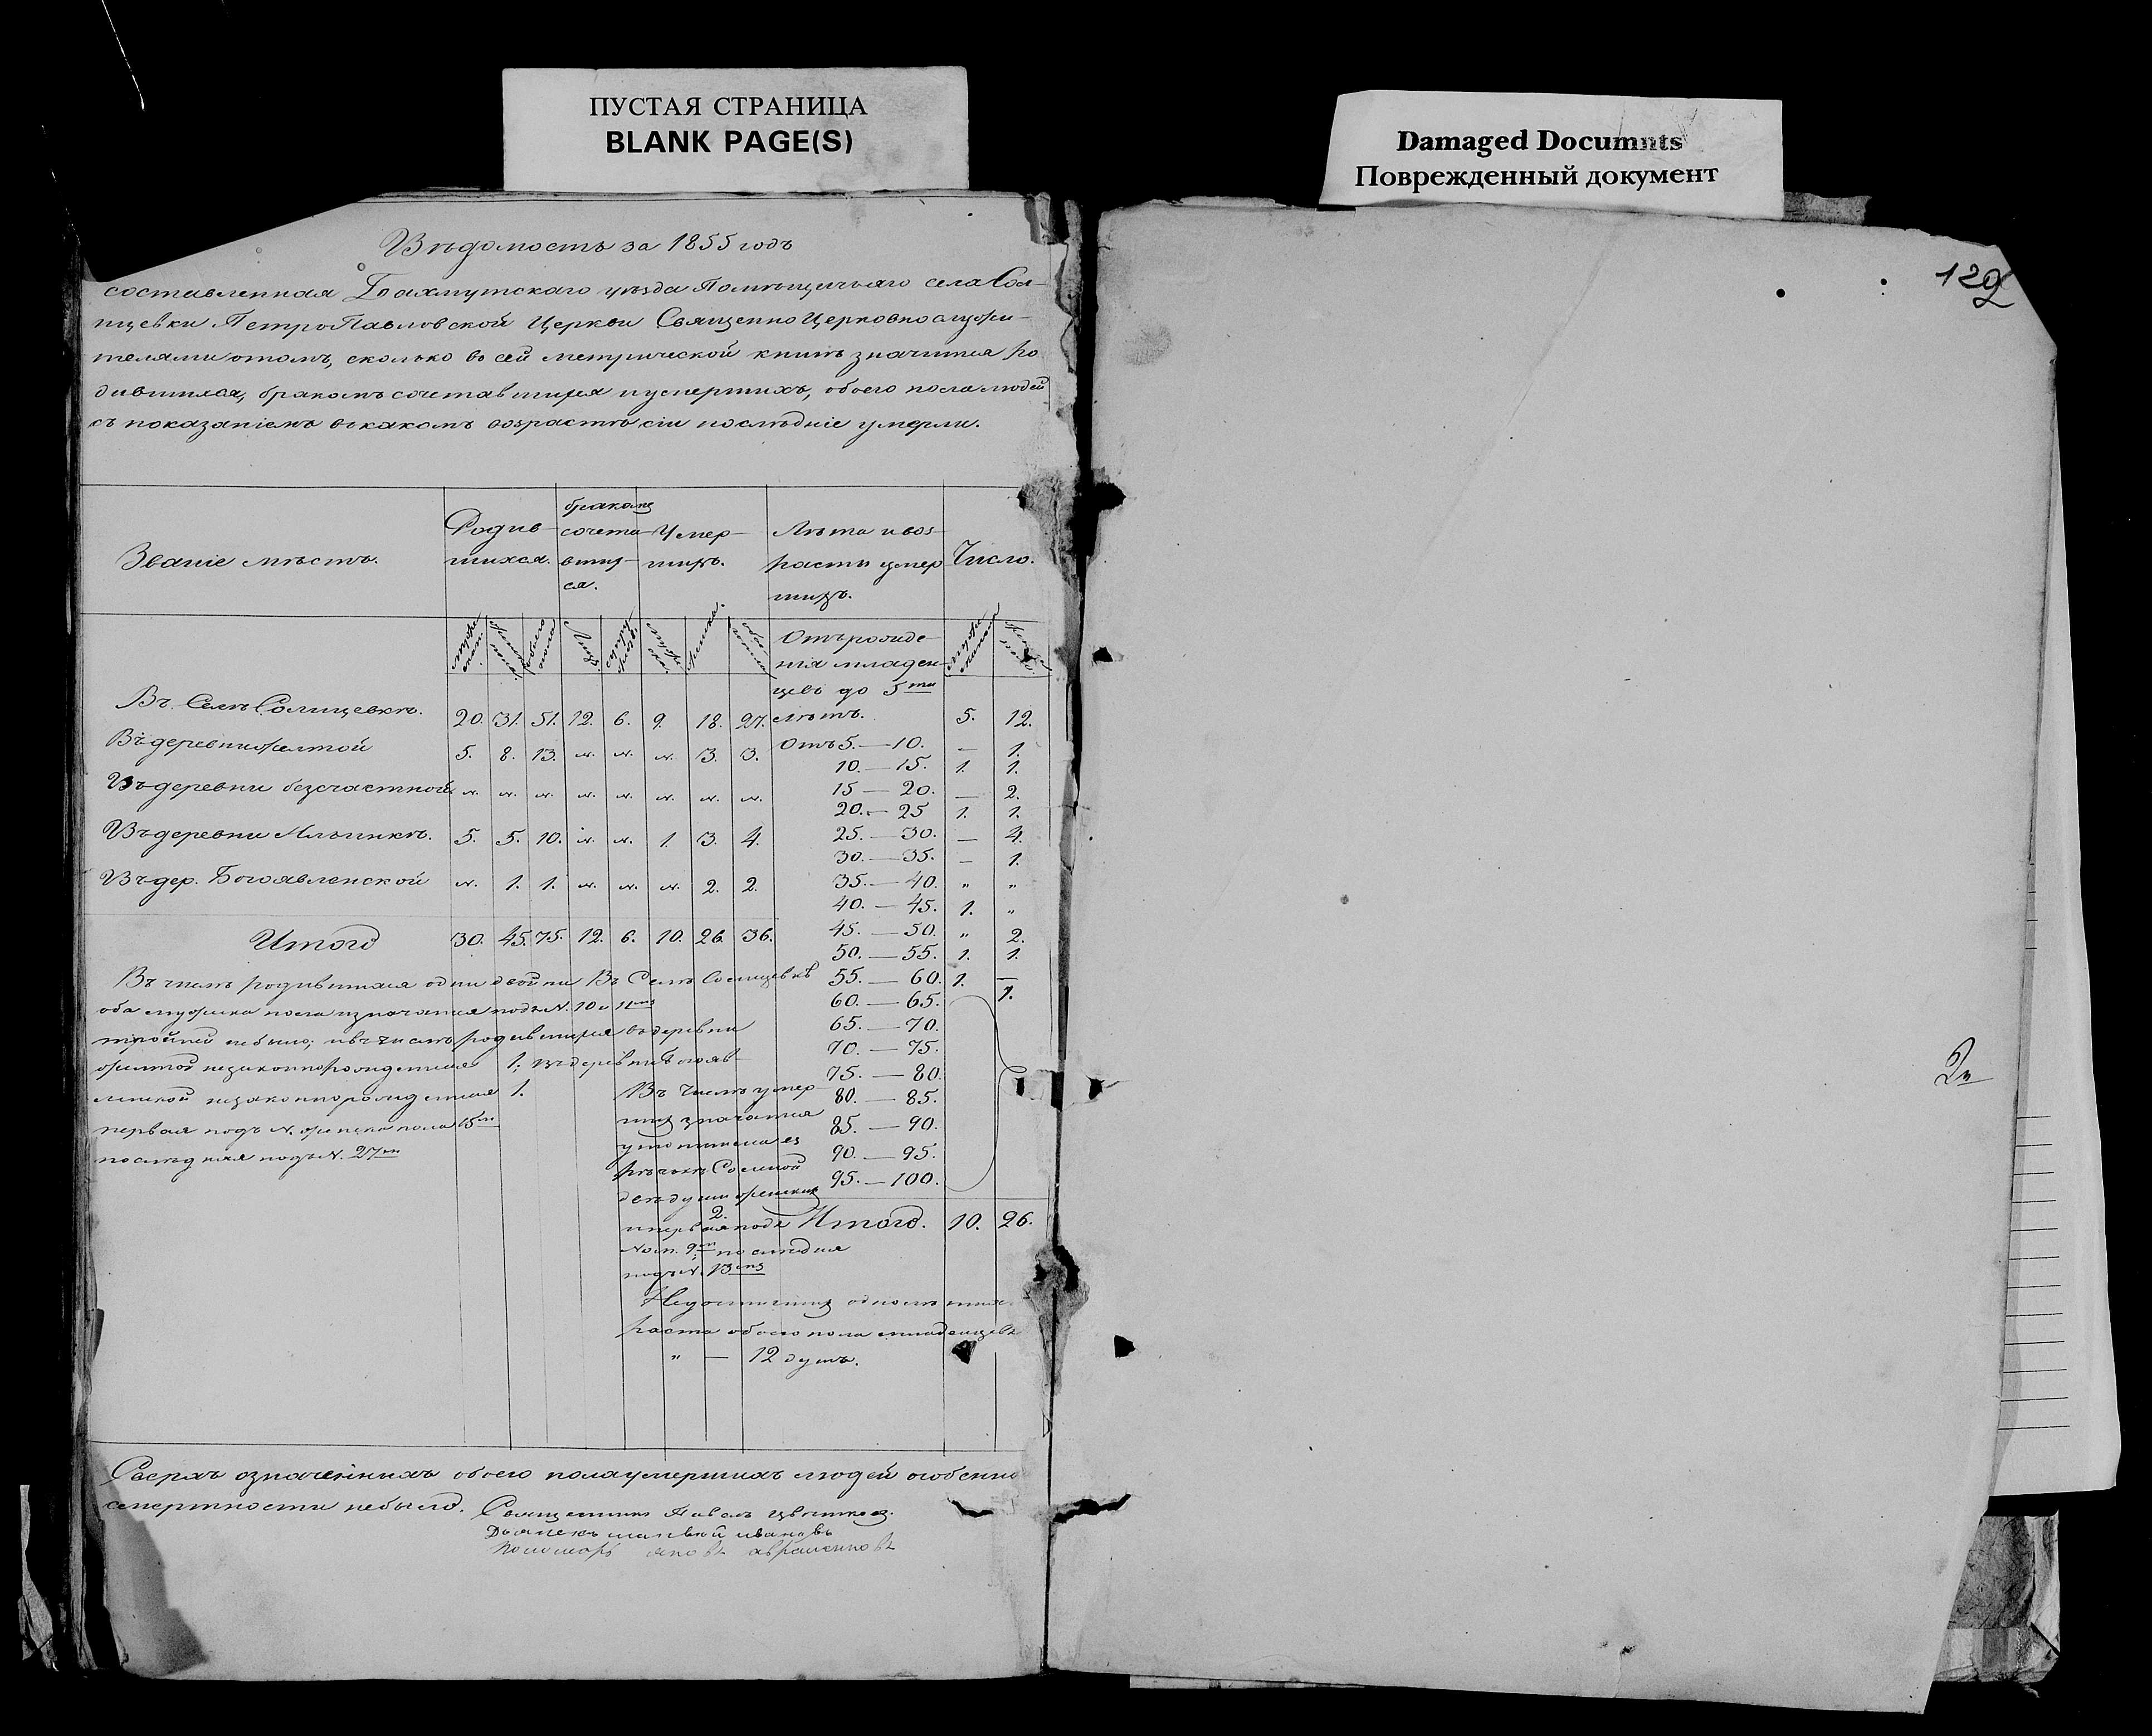 ПУСТАЯ СТРАНИЦА
BLANK PAGE(S)
Damaged Documnts
Поврежденный документ
129
Вѣдомость за 1855 годъ
составленная Бахмутскаго уѣзда Помѣщичьяго села Сол-
нцевки ПетроПавловской Церкви СвященноЦерковнослужи-
телями отомъ, сколько въ сей метрической книгѣ значится ро
дившихся, бракомъ сочетавшихся иумершихъ, обоего пола людей
съ показаніемъ въкакомъ возрастѣ сіи послѣдніе умерли.
Званіе мѣстъ.
Родив-
шихся.
бракомъ
сочета-
вших-
ся.
Умер-
шихъ.
Лѣта ивоз-
растъ умер
шихъ.
Число.
Отърожде-
нія младен-
цевъ до 5ти
лѣтъ. 5. 12.
Въ Селѣ Солнцевкѣ. 20. 31. 51. 12. 6. 9. 18. 27.
Отъ 5. — 10. — 1.
Въ деревни Желтой 5. 8. 13. „ „ „ 3. 3.
10. — 15. 1. 1.
Въ деревни безсчастной „ „ „ „ „ „ „ „
15 — 20. — 2.
20. — 25 1. 1.
Въ деревни Ильинкѣ. 5. 5. 10. „ „ 1. 3. 4.
25. — 30. — 4.
30. — 35. — 1.
Въ дер. Богоявленской „ 1. 1. „ „ „ 2. 2.
35. — 40. „ „
40. — 45. 1. „
Итого 30. 45. 75. 12. 6. 10. 26. 36.
45. — 50. „ 2.
50. — 55. 1. 1.
55. — 60. 1. —
60. — 65. 1.
65. — 70.
70. — 75.
75. — 80.
80. — 85.
85. — 90.
90. — 95.
95. — 100.
Итого. 10. 26.
Въ числѣ родившихся одни двойни Въ Селѣ Солнцевкѣ
оба мужска пола значатся подъ N. 10 и 11мъ
тройней небыло; ивъ числѣ родившихся въ деревни
желтой незаконнорожденная 1; въ деревни Богояв-
ленской незаконнорожденная 1.
первая подъ N. женска пола 15м
послѣдняя подъ N. 27м
Въ числѣ умер-
шихъ значатся
утопшими въ
рѣчкѣ Соленой
двѣ души женскихъ
2.
и первая подъ
Nом. 9м; послѣдняя
подъ N. 13мъ
Недостигшихъ однолѣтня
раста обоего пола младенцевъ
„ — 12 душъ.
2й
Сверхъ означенныхъ обоего полаумершихъ людей особенно
смертности небыло. Священникъ Павелъ Цвѣтков.
Дьячекъ матвѣй ивановъ
Пономарь яковъ авраменковъ